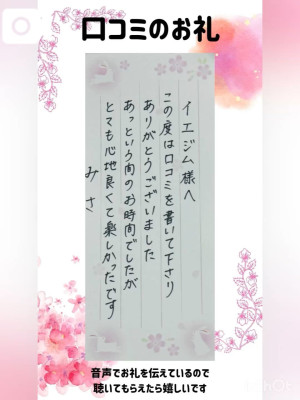 口コミのお礼
イエジム様へ
この度は口コミを書いて下さり
ありがとうございました
あっという間のお時間でしたが
とても心地良くて楽しかったです
みさ
音声でお礼を伝えているので
聴いてもらえたら嬉しいです